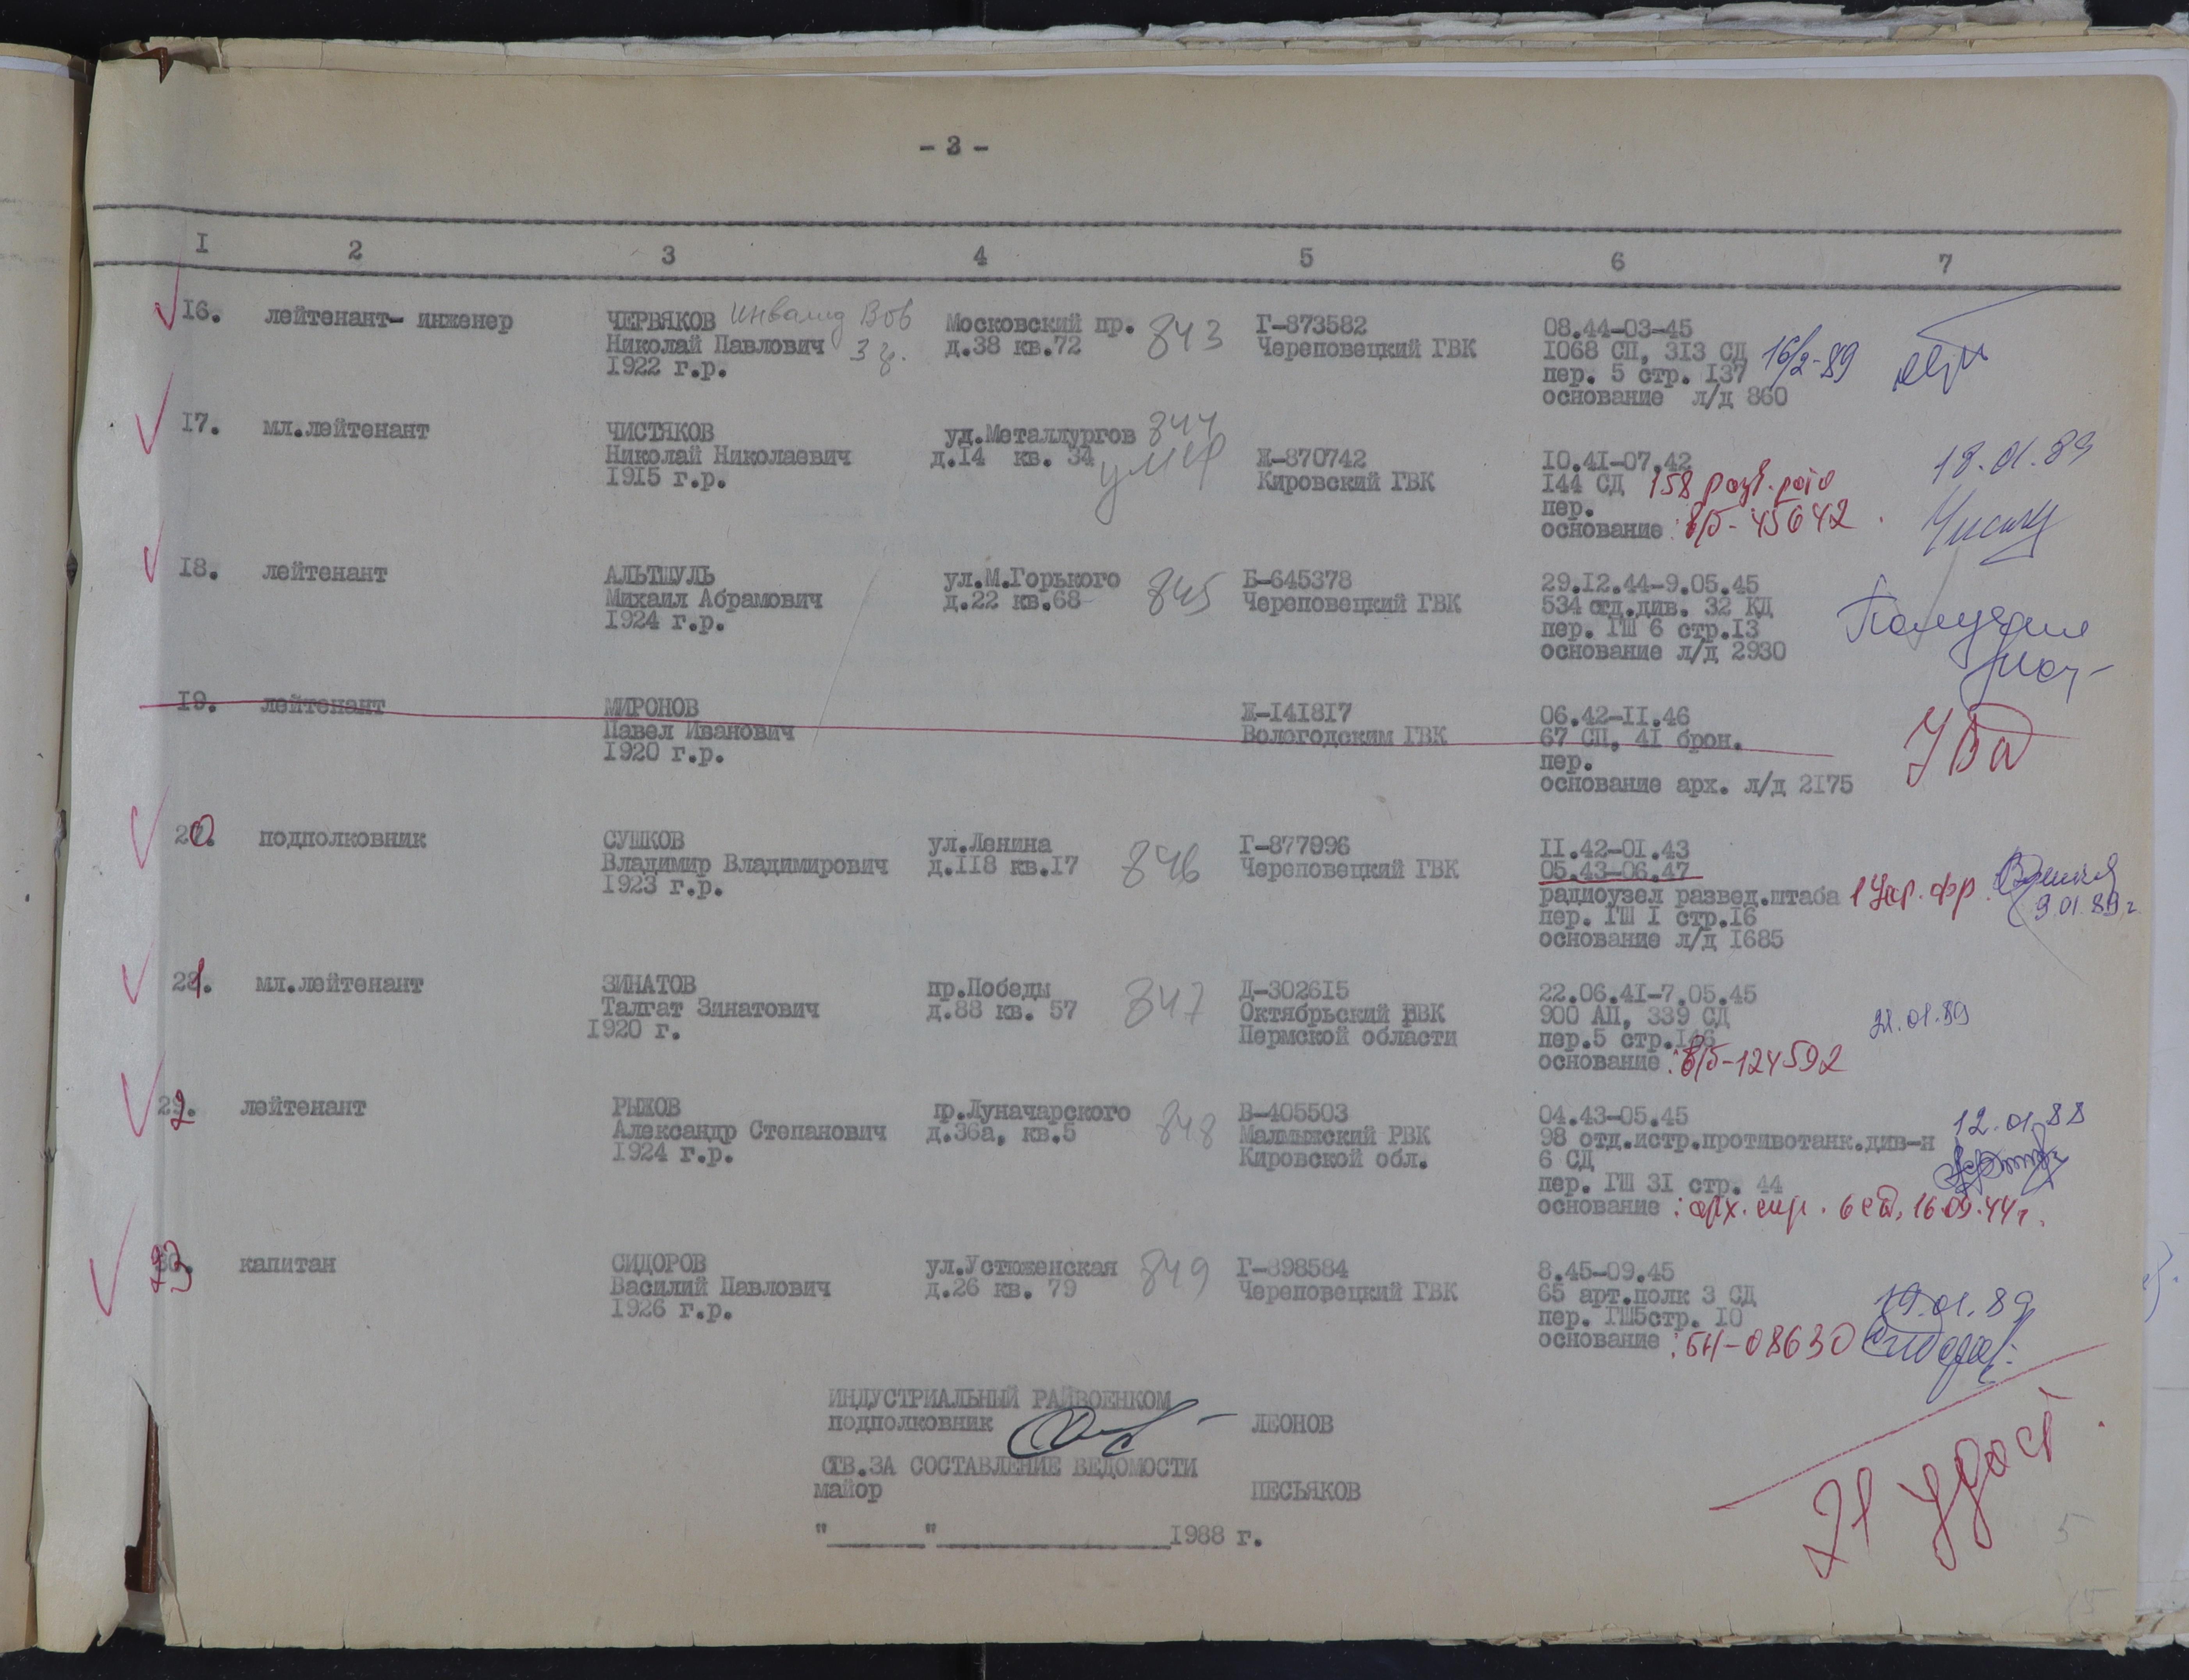 - 3 -
I 2 3 4 5 6 7
I6. лейтенант- инженер ЧЕРВЯКОВ инвалид Вов Московский пр. 843 Г-873582 08.44-03-45
Николай Павлович 3 гр. д.38 кв.72 Череповецкий ГВК I068 СП, 3I3 СД 16/2-89
I922 г.р. пер. 5 стр. I37
основание л/д 860
I7. мл.лейтенант ЧИСТЯКОВ уд.Металлургов 844
Николай Николаевич д.I4 кв. 34 умер Ж-870742 I0.4I-07.42 18.01.89
I9I5 г.р. Кировский ГВК I44 СД 158 разв. рота
пер.
основание : в/б-45642.
I8. лейтенант АЛЬТШУЛЬ ул.М.Горького 845 Б-645378 29.I2.44-9.05.45
Михаил Абрамович д.22 кв.68 Череповецкий ГВК 534 отд.див. 32 КД
I924 г.р. пер. ГШ 6 стр.I3
основание л/д 2930
I9. лейтенант МИРОНОВ Ж-I4I8I7 06.42-II.46
Павел Иванович Вологодским ГВК 67 СП, 4I брон.
I920 г.р. пер.
основание арх. л/д 2I75
20. подполковник СУШКОВ ул.Ленина 846 Г-877896 II.42-0I.43
Владимир Владимирович д.II8 кв.I7 Череповецкий ГВК 05.43-06.47
I923 г.р. радиоузел развед.штаба 1 Укр. фр.
пер. ГШ I стр.I6 9.01.89 г
основание л/д I685
21. мл.лейтенант ЗИНАТОВ пр.Победы 847 Д-3026I5 22.06.4I-7.05.45
Талгат Зинатович д.88 кв. 57 Октябрьский РВК 900 АП, 339 СД 21.01.89
I920 г. Пермской области пер.5 стр.I46
основание : в/б-124592
22. лейтенант РЫЖОВ пр.Луначарского 848 В-405503 04.43-05.45 12.01.88
Александр Степанович д.36а, кв.5 Малмыжский РВК 98 отд.истр.противотанк.див-н
I924 г.р. Кировской обл. 6 СД
пер. ГШ 3I стр. 44
основание : арх. спр. 6 сд, 16.09.44г.
23. капитан СИДОРОВ ул.Устюженская 849 Г-898584 8.45-09.45
Василий Павлович д.26 кв. 79 Череповецкий ГВК 65 арт.полк 3 СД
I926 г.р. пер. ГШ5стр. I0 19.01.89
основание : БН-08630
ИНДУСТРИАЛЬНЫЙ РАЙВОЕНКОМ
подполковник ЛЕОНОВ
ОТВ.ЗА СОСТАВЛЕНИЕ ВЕДОМОСТИ
майор ПЕСЬЯКОВ
"______"______________I988 г.
21 удост.